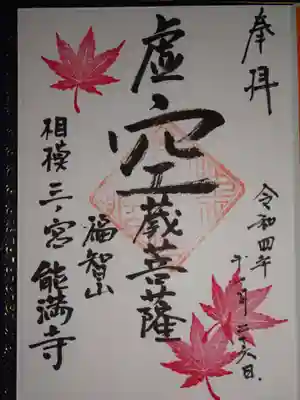 奉拝
令和四年
十一月二十六日
虚空蔵菩薩
福智山
相模三ノ宮 能満寺